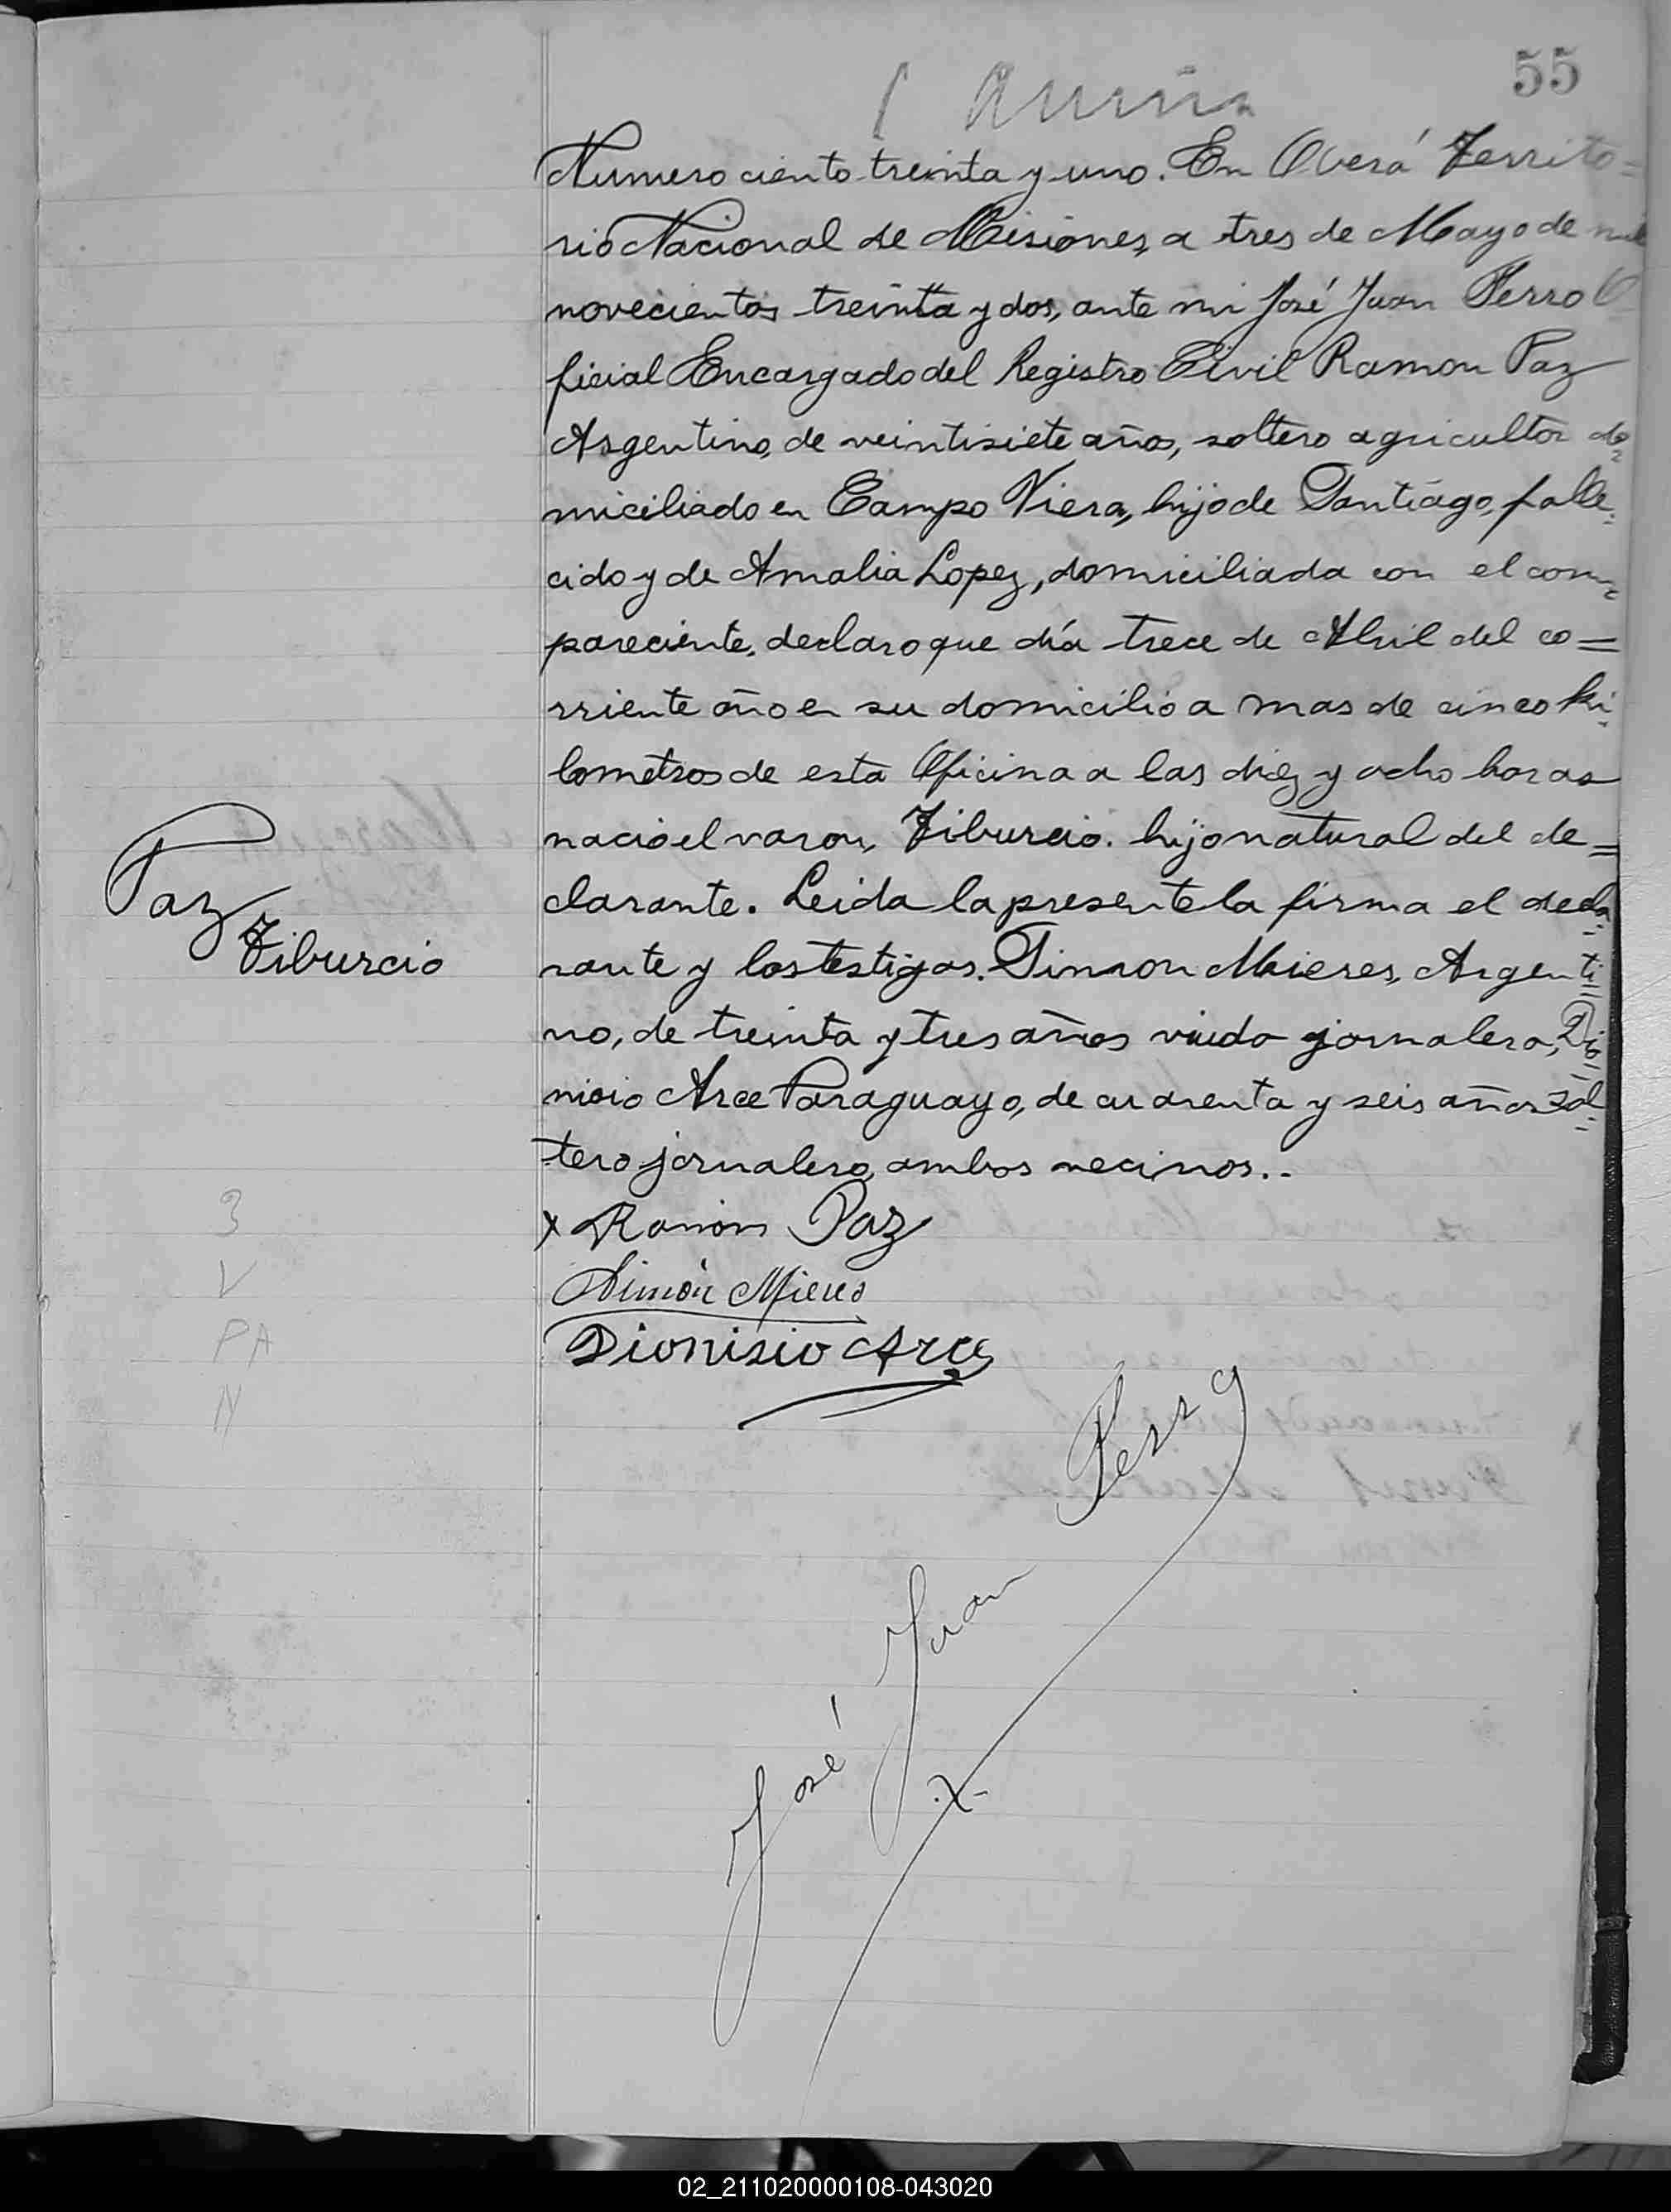 55
Numero ciento treinta y uno. En Oberá Territo=
rio Nacional de Misiones, a tres de Mayo de mil
novecientos treinta y dos, ante mi José Juan Perro O
ficial Encargado del Registro Civil Ramon Paz
Argentino, de veintisiete años, soltero agricultor do=
miciliado en Campo Viera, hijo de Santiago, falle=
cido y de Amalia Lopez, domiciliada con el com=
pareciente, declaro que día trece de Abril del co=
rriente año en su domicilio a mas de cinco ki=
lometros de esta Oficina a las diez y ocho horas
nació el varon, Tiburcio. hijo natural del de=
clarante. Leida la presente la firma el decla=
rante y los testigos. Simon Mieres, Argenti=
no, de treinta y tres años viudo jornalero, Dio=
nicio Arce Paraguayo, de cuarenta y seis años sol=
tero jornalero, ambos vecinos..
Paz
Tiburcio
x Ramon Paz
Simón Mieres
Dionisio Arce
José Juan Perro
3
V
PA
N
02_211020000108-043020